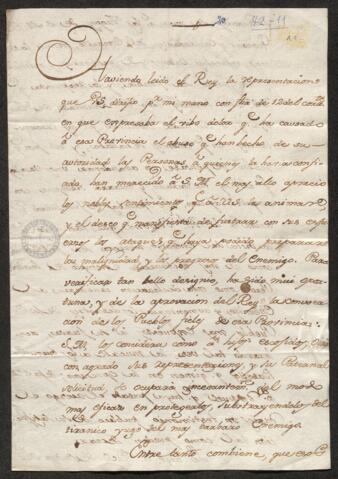 20
42-11
Haviendo leido el Rey la representacion
que V.S. dirijio pr. mi mano con fha de 12 del corrte.
en que expresaba el vibo dolor qe. ha causado
à esa Provincia el abuso qe. han hecho de su
autoridad las Personas à quienes la havia confia-
do, han merecido à S. M. el mas alto aprecio
los nobles sentimientos qe. à V.S. la animan
y el deseo qe. manifiesta de frustrar con sus esfu-
erzos los ataques qe. haya podido preparar
la malignidad y los progresos del Enemigo. Para
verificar tan bello designio, ha sido mui opor-
tuna, y de la aprovacion del Rey la convoca-
cion de los Pueblos fieles de esa Provincia:
S. M. los considera como à hijos escojidos,
con agrado sus representaciones, y su Paternal
solicitud se ocupará incesantemte. del modo
mas eficaz en protegerlos, substrayendoles del
tiranico yugo del mas barbaro Enemigo.
Entre tanto combiene, que